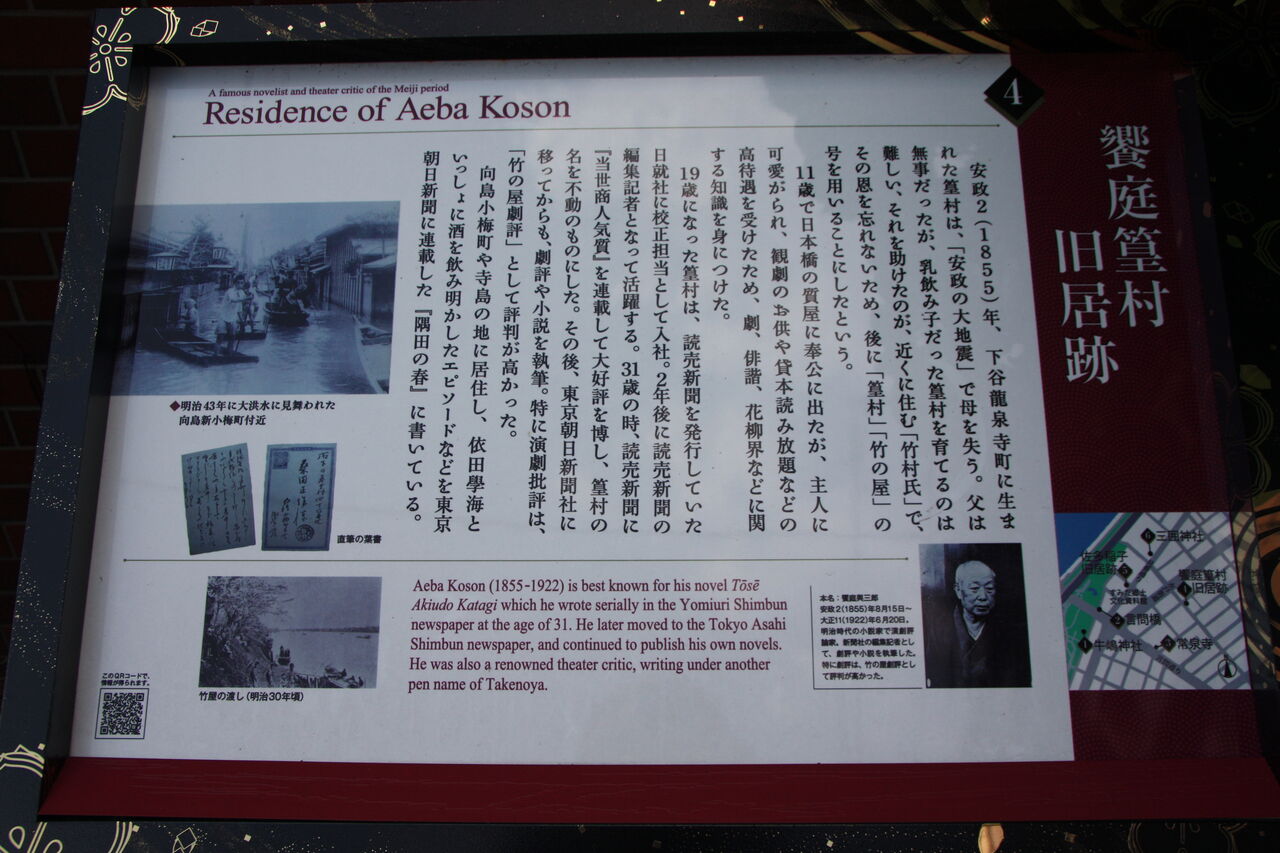 A famous novelist and theater critic of the Meiji period
Residence of Aeba Koson
4
饗庭篁村
旧居跡
安政2（1855）年、下谷龍泉寺町に生ま
れた篁村は、「安政の大地震」で母を失う。父は
無事だったが、乳飲み子だった篁村を育てるのは
難しい、それを助けたのが、近くに住む「竹村氏」で、
その恩を忘れないため、後に「篁村」「竹の屋」の
号を用いることにしたという。
11歳で日本橋の質屋に奉公に出たが、主人に
可愛がられ、観劇のお供や貸本読み放題などの
高待遇を受けたため、劇、俳諧、花柳界などに関
する知識を身につけた。
19歳になった篁村は、読売新聞を発行していた
日就社に校正担当として入社。2年後に読売新聞の
編集記者となって活躍する。31歳の時、読売新聞に
『当世商人気質』を連載して大好評を博し、篁村の
名を不動のものにした。その後、東京朝日新聞社に
移ってからも、劇評や小説を執筆。特に演劇批評は、
「竹の屋劇評」として評判が高かった。
向島小梅町や寺島の地に居住し、依田學海と
いっしょに酒を飲み明かしたエピソードなどを東京
朝日新聞に連載した『隅田の春』に書いている。
◆明治43年に大洪水に見舞われた
向島新小梅町付近
直筆の葉書
竹屋の渡し（明治30年頃）
このQRコードで、
情報が得られます。
Aeba Koson (1855-1922) is best known for his novel Tōsē
Akiudo Katagi which he wrote serially in the Yomiuri Shimbun
newspaper at the age of 31. He later moved to the Tokyo Asahi
Shimbun newspaper, and continued to publish his own novels.
He was also a renowned theater critic, writing under another
pen name of Takenoya.
本名：饗庭與三郎
安政2(1855)年8月15日〜
大正11(1922)年6月20日。
明治時代の小説家で演劇評
論家。新聞社の編集記者とし
て、劇評や小説を執筆した。
特に劇評は、竹の屋劇評とし
て評判が高かった。
6 三囲神社
佐多稲子
旧居跡 5
すみだ郷土
文化資料館
饗庭篁村
4 旧居跡
2 言問橋
1 牛嶋神社
3 常泉寺